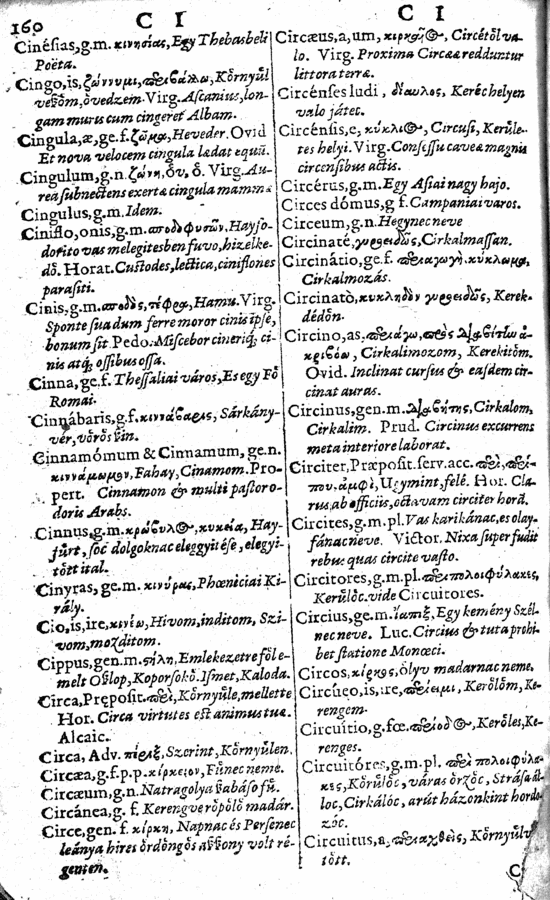 160
C I
C I
Cinésias, g.m. κινησίας, Egy Thebasbeli
Poëta.
Cingo, is, ζώννυμι, περιβάλλω, Kőrnyűl
veſſőm, óvedzem. Virg. Aſcanius, lon-
gam muris cum cingeret Albam.
Cingula, æ, ge.f. ζῶμα, Heveder. Ovid
Et nova velocem cingula lædat equũ.
Cingulum, g.n. ζώνη, őv, ő. Virg. Au-
rea ſubnectens exertæ cingula mammæ
Cingulus, g.m. Idem.
Ciniflo, onis, g.m. Hayfo-
dorito vas melegitesben fuvo, hizelke-
dő. Horat. Cuſtodes, lectica, ciniflones
paraſiti.
Cinis, g.m. σποδὸς, τέφρα, Hamu. Virg.
Sponte ſua dum ferre moror cinis ipſe,
bonum ſit. Pedo. Miſcebor cineriq;, ci-
nis atq; oſſibus oſſa.
Cinna, ge.f. Theſſaliai város, Es egy Fő
Romai.
Cinnábaris, g.f. κιννάβαρις, Sárkány-
vér, vőrős ſin.
Cinnamómum & Cinnamum, ge.n.
κιννάμωμον, Fahay, Cinamom. Pro-
pert. Cinnamon & multi paſtor o-
doris Arabs.
Cinnus, g.m. κυκεία, Hay-
fűrt, ſoc dolgoknac eleggyitéſe, elegyi-
tőtt ital.
Cinyras, ge.m. κινύρας, Phœniciai Ki-
rály.
Cio, is, ire, κινέω, Hivom, inditom, Szi-
vom, mozditom.
Cippus, gen.m. στήλη, Emlekezetre fől e-
melt Oſlop, Koporſokő. Iſmet, Kaloda.
Circa, Præpoſit. περὶ, Kőrnyűle, mellette
Hor. Circa virtutes est animus tuæ.
Alcaic.
Circa, Adv. πέριξ, Szerint, Kőrnyűlen.
Circæa, g.f.p.p. κίρκειον, Fűnec neme.
Circæum, g.n. Natragolya ſabáſo fű.
Circánea, g. f. Kerengve rőpőlő madár.
Circe, gen. f. κίρκη, Napnac és Perſenec
leánya hires őrdőngős aſſony volt ré-
genten.
Circæus, a, um, κιρκαῖος, Circétől va-
lo. Virg. Proxima Circææ redduntur
littora terræ.
Circénſes ludi, δίαυλος, Kerêc helyen
valo játec.
Circénſis, e, κύκλιος, Circuſi, Kerűle-
tes helyi. Virg. Conſeſſu caveæ magnis
circenſibus actis.
Circérus, g.m. Egy Aſiai nagy hajo.
Circes dómus, g f. Campaniai varos.
Circeum, g.n. Hegynec neve
Circinaté, γυροειδῶς, Cirkalmaſſan.
Circinátio, ge.f. περιαγωγὴ, κύκλωμα,
Cirkalmozás.
Circinatò, κυκληδὸν γυροειδῶς, Kerek-
dédőn.
Circino, as, περιάγω, πρὸς διαβίτῳ ἀ-
κριβόω, Cirkalmozom, Kerekitőm.
Ovid. Inclinat curſus & eaſdem cir-
cinat auras.
Circinus, gen.m. διαβήτης, Cirkalom,
Cirkalim. Prud. Circinus excurrens
meta interiore laborat.
Circiter, Præpoſit. ſerv. acc. περὶ, περί-
που, ἀμφὶ, Ugymint, felé. Hor. Cla-
rus, ab officiis, octavam circiter horã.
Circites, g.m. pl. Vas karikánac, es olay-
fánac neve. Victor. Nixa ſuper fudit
rebus quas circite vaſto.
Circitores, g.m.pl. περιπολοιφύλακες,
Kerűlőc. vide Circuitores.
Circius, ge.m. ἰαπιξ, Egy kemény Szél-
nec neve. Luc. Circius & tuta prohi-
bet ſtatione Monœci.
Circos, κίρκος, őlyv madarnac neme.
Circúeo, is, ire, περίειμι, Kerőlőm, Ke-
rengem.
Circuítio, g.fœ. περίοδος, Kerőles, Ke-
renges.
Circuitóres, g.m. pl. περὶ πολοιφύλα-
κες, Kőrűlőc, váras őrzőc, Stráſa ál-
loc, Cirkálóc, arút házonkint hordo-
zóc.
Circuitus, a, περιαχθεὶς, Kőrnyűlv
tőtt.
C